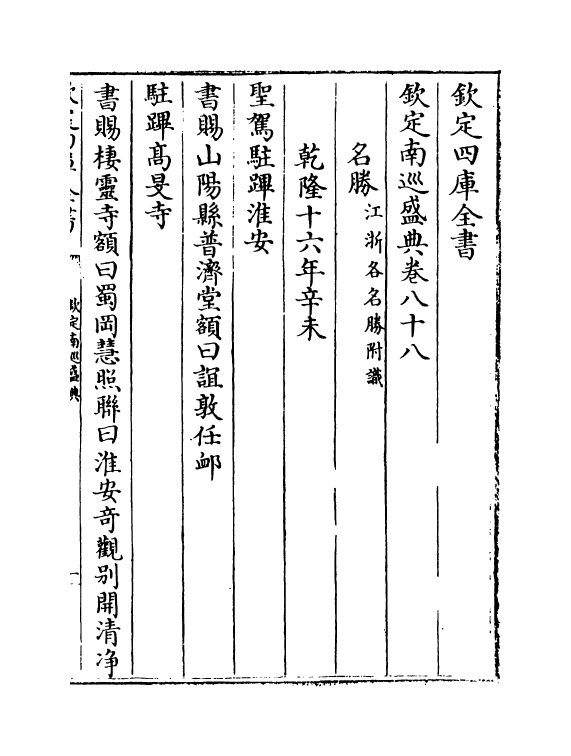 欽定四庫全書
欽定南巡盛典卷八十八
名勝江浙各名勝附識
乾隆十六年辛未
聖駕駐蹕淮安
書賜山陽縣普濟堂額曰誼敦任卹
駐蹕髙旻寺
書賜棲靈寺額曰蜀岡慧照聯曰淮安奇觀别開清净
欽定南巡盛典